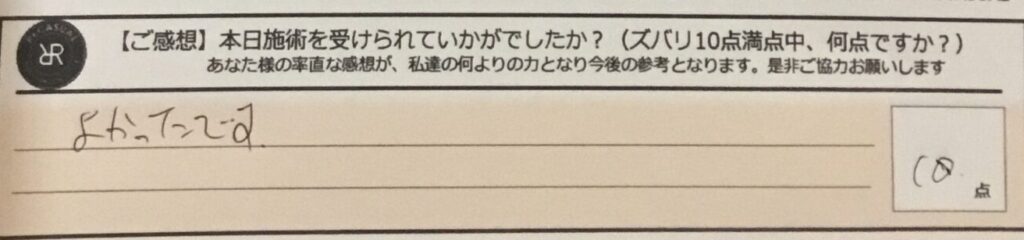 【ご感想】本日施術を受けられていかがでしたか？（ズバリ10点満点中、何点ですか？）
あなた様の率直な感想が、私達の何よりの力となり今後の参考となります。是非ご協力お願いします
よかったです
10
点